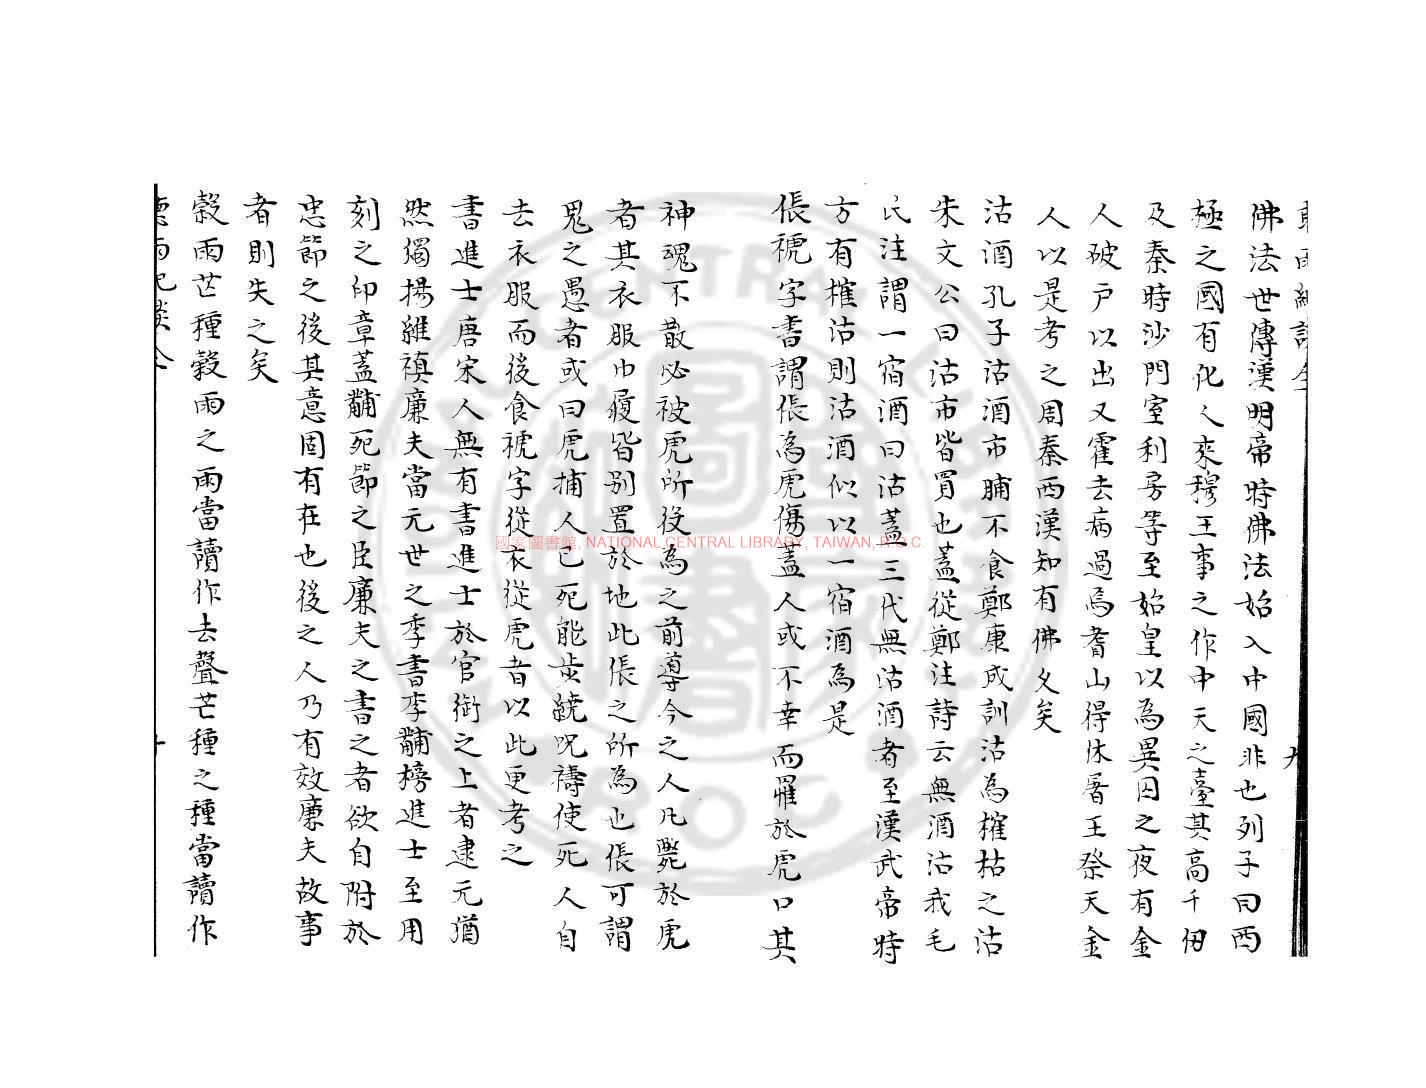 佛法世傳漢明帝時佛法始入中國非也列子曰西
極之國有化人來穆王事之作中天之臺其高千仞
及秦時沙門室利房等至始皇以為異囚之夜有金
人破戶以出又霍去病過焉耆山得休屠王祭天金
人以是考之周秦西漢知有佛久矣
沽酒孔子沽酒市脯不食鄭康成訓沽為榷枯之沽
朱文公曰沽市皆買也蓋從鄭注詩云無酒沽我毛
氏注謂一宿酒曰沽蓋三代無沽酒者至漢武帝時
方有榷沽則沽酒似以一宿酒為是
倀褫字書謂倀為虎傷蓋人或不幸而罹於虎口其
神魂不散必被虎所役為之前導今之人凡斃於虎
者其衣服巾履皆别置於地此倀之所為也倀可謂
鬼之愚者或曰虎捕人已死能步繞呪禱使死人自
去衣服而後食褫字從衣從虎者以此更考之
書進士唐宋人無有書進士於官銜之上者逮元猶
然獨揚維禎廉夫當元世之季書李黼榜進士至用
刻之印章蓋黼死節之臣廉夫之書之者欲自附於
忠節之後其意固有在也後之人乃有效廉夫故事
者則失之矣
穀雨芒種穀雨之雨當讀作去聲芒種之種當讀作
國家圖書館, NATIONAL CENTRAL LIBRARY, TAIWAN, R.O.C.